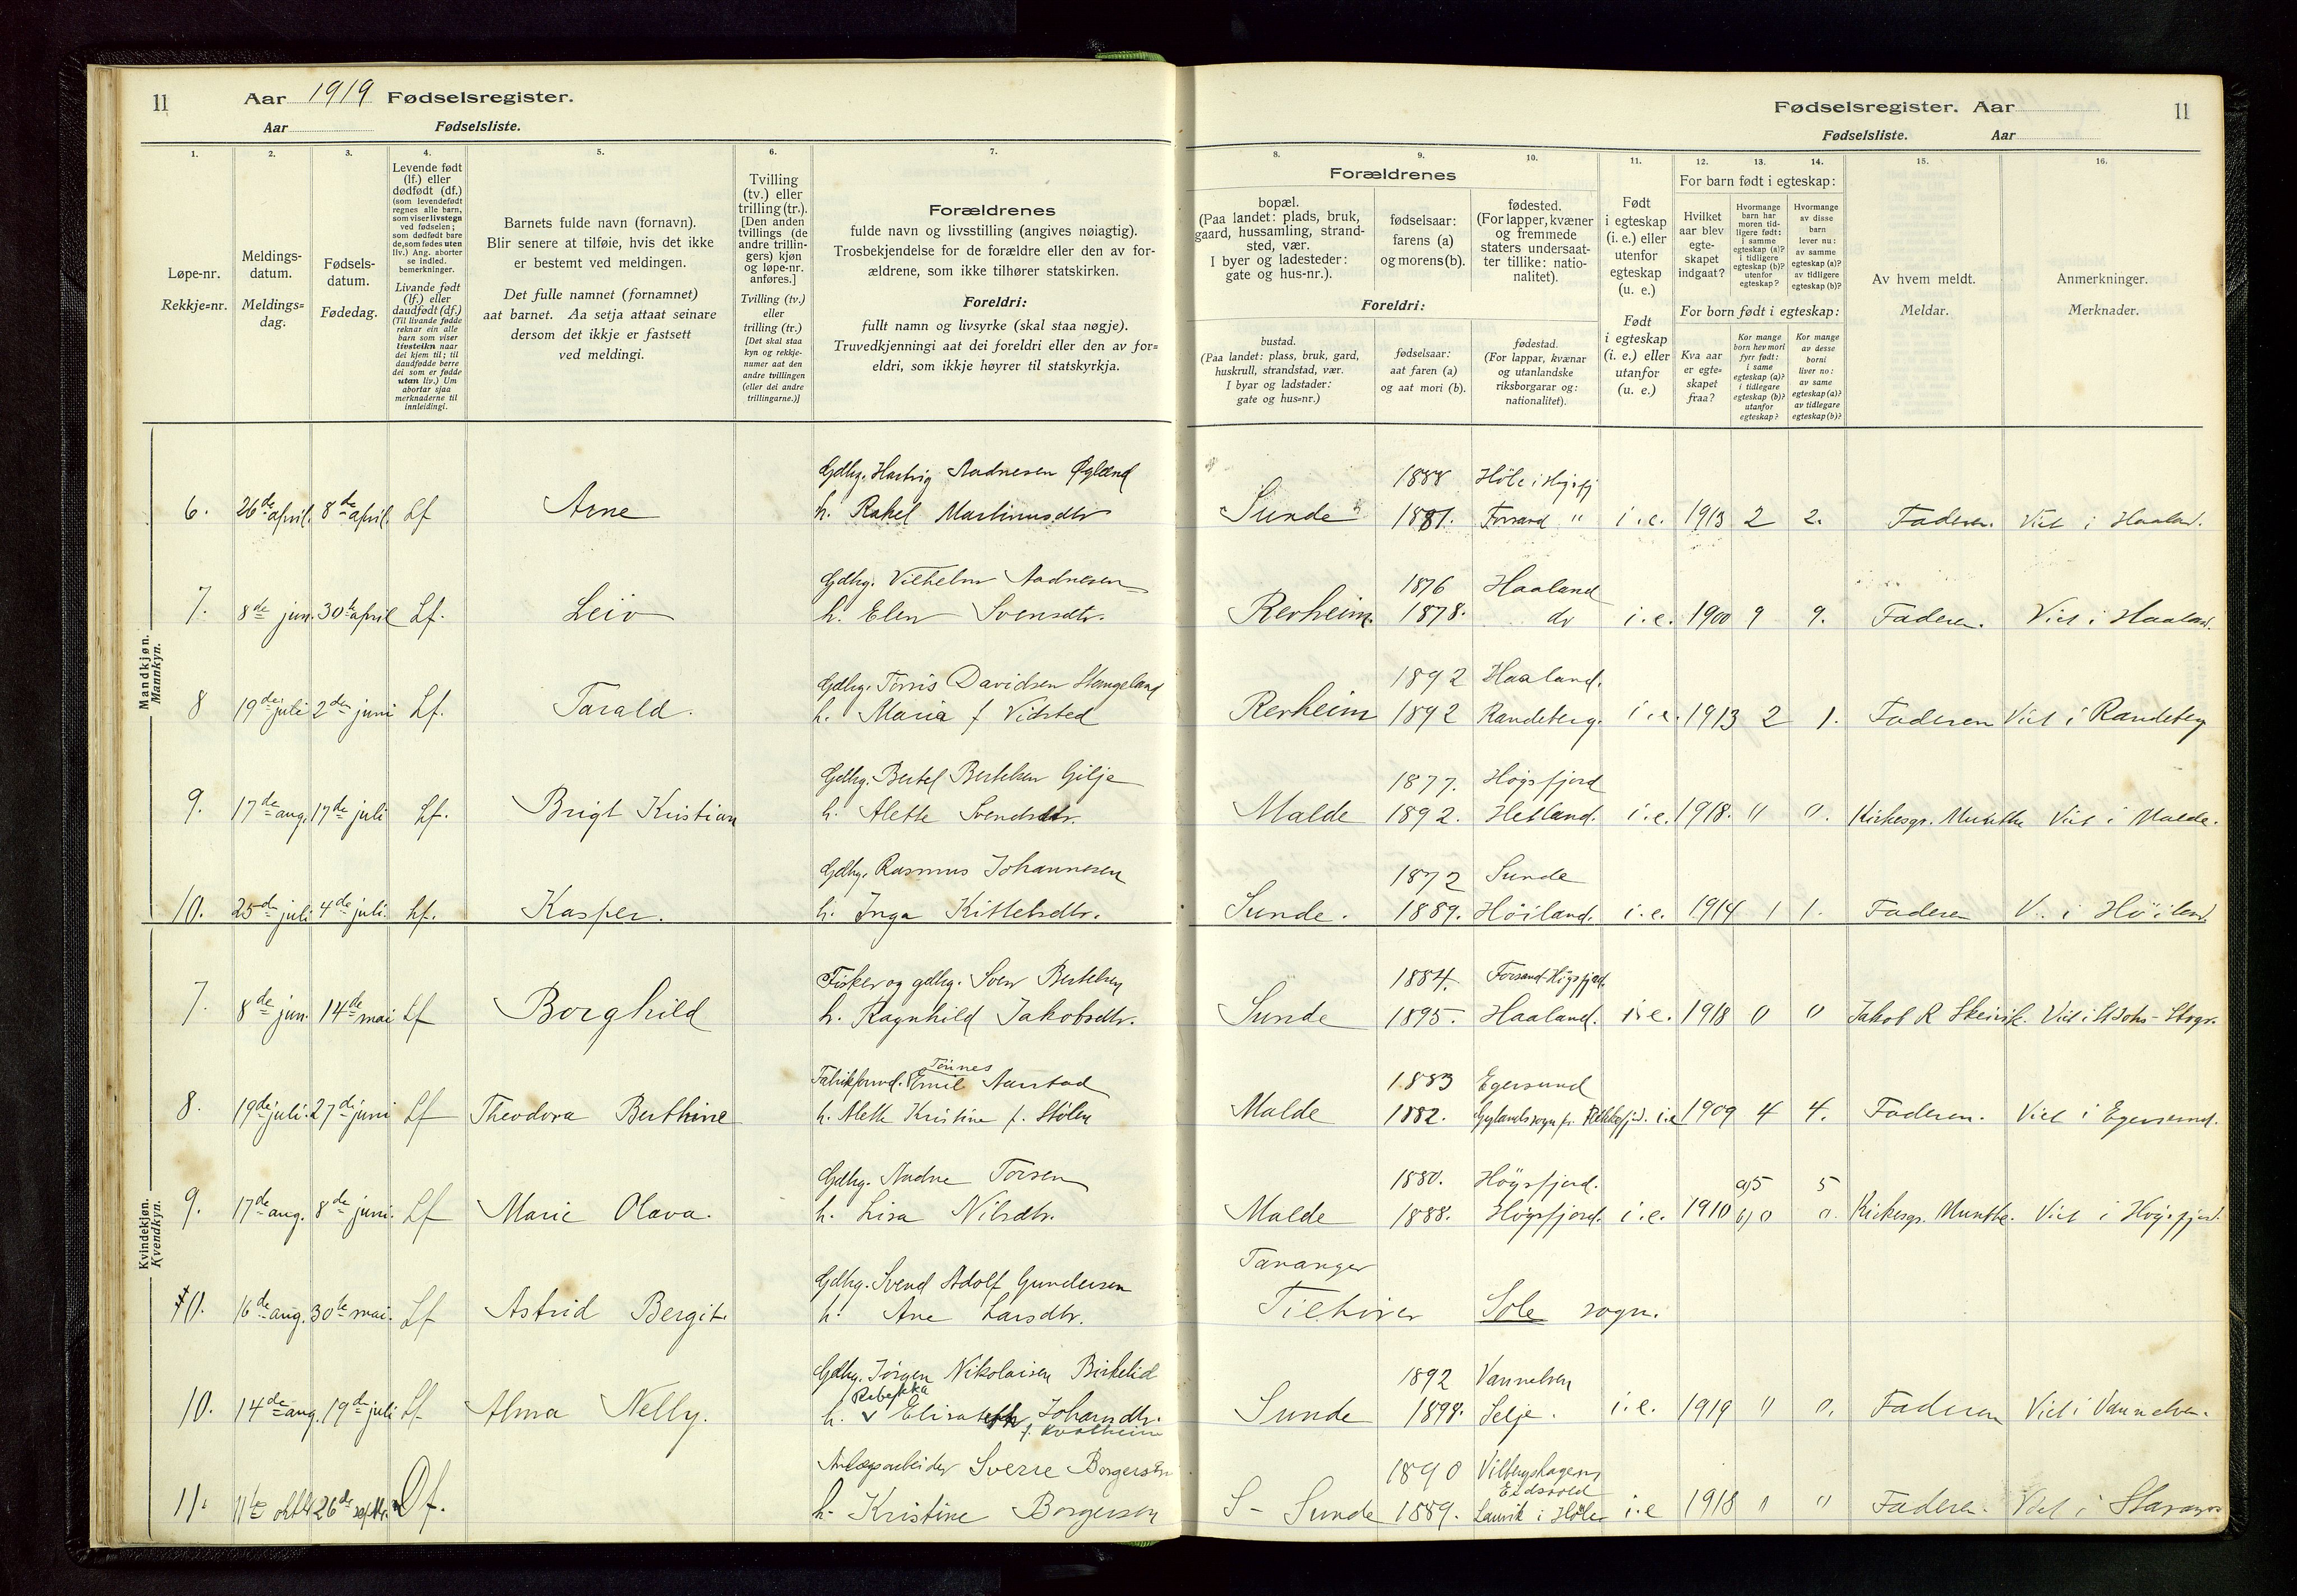 11 Aar 1919 Fødselsregister.
Aar Fødselsliste.
Fødselsregister. Aar 11
Fødselsliste. Aar
1. 2. 3. 4. 5. 6. 7.
Løpe-nr.
Rekkje=nr.
Meldings-
datum.
Meldings=
dag.
Fødsels-
datum.
Fødedag.
Levende født
(lf.) eller
dødfødt (df.)
(som levendefødt
regnes alle barn,
som viser livstegn
ved fødselen;
som dødfødt bare
de, som fødes uten
liv.) Ang. aborter
se indled.
bemerkninger.
Livande født
(lf.) eller
daudfødt (df.)
(Til livande fødde
reknar ein alle
barn som viser
livsteikn naar
dei kjem til; til
daudfødde berre
dei som er fødde
utan liv.) Um
abortar sjaa
merknaderne til
innleidingi.
Barnets fulde navn (fornavn).
Blir senere at tilføie, hvis det ikke
er bestemt ved meldingen.
Det fulle namnet (fornamnet)
aat barnet. Aa setja attaat seinare
dersom det ikkje er fastsett
ved meldingi.
Tvilling
(tv.) eller
trilling (tr.).
[Den anden
tvillings (de
andre trillin-
gers) kjøn
og løpe-nr.
anføres.]
Tvilling (tv.)
eller
trilling (tr.)
[Det skal staa
kyn og rekkje-
numer aat den
andre tvillingen
(eller dei andre
trillingarne.)]
Forældrenes
fulde navn og livsstilling (angives nøiagtig).
Trosbekjendelse for de forældre eller den av for-
ældrene, som ikke tilhører statskirken.
Foreldri:
fullt namn og livsyrke (skal staa nøgje).
Truvedkjenningi aat dei foreldri eller den av for=
eldri, som ikkje høyrer til statskyrkja.
8. 9. 10. 11. 12. 13. 14. 15. 16.
Forældrenes
bopæl.
(Paa landet: plads, bruk,
gaard, hussamling, strand-
sted, vær.
I byer og ladesteder:
gate og hus-nr.).
fødselsaar:
farens (a)
og morens (b).
fødested.
(For lapper, kvæner
og fremmede
staters undersaat-
ter tillike: natio-
nalitet).
Foreldri:
bustad.
(Paa landet: plass, bruk, gard,
huskrull, strandstad, vær.
I byar og ladstader:
gate og hus=nr.)
fødselsaar:
aat faren (a)
og aat mori (b).
fødestad.
(For lappar, kvænar
og utanlandske
riksborgarar og:
nationalitet).
Født
i egteskap
(i. e.) eller
utenfor
egteskap
(u. e.)
Født
i egteskap
(i. e.) eller
utanfor
(u. e.)
For barn født i egteskap:
Hvilket
aar blev
egte-
skapet
indgaat?
Hvormange
barn har
moren tid-
ligere født:
i samme
egteskap (a)?
i tidligere
egteskap (b)?
utenfor
egteskap?
Hvormange
av disse
barn
lever nu:
av samme
egteskap (a)?
av tidligere
egteskap (b)?
For born født i egteskap:
Kva aar
er egte=
skapet
fraa?
Kor mange
born hev mori
fyrr født:
i same
egteskap (a)?
i tidlegare
egteskap (b)?
utanfor
egteskap?
Kor mange
av desse
borni
liver no:
av same
egteskap (a)?
av tidlegare
egteskap (b)?
Av hvem meldt.
Meldar.
Anmerkninger.
Merknader.
Mandkjøn.
Mannkyn.
Gdbg. Hartvig Aadnesen Øglænd 1888 Höle i Högsfj
6. 26de april. 8de april. Lf Arne h. Rakel Martinusdtr Sunde 1881. Forsand " i.e. 1913 2 2. Faderen. Viet i Haaland.
Gdbg. Vilhelm Aadnesen 1876 Haaland
7. 8de jun. 30te april Lf. Leiv h. Elen Svensdtr. Rerheim. 1878. do i.e. 1900 9 9. Faderen. Viet i Haaland.
Gdbg. Tørris Davidsen Stangeland 1892 Haaland.
8 19de juli 2den juni Lf. Tarald. h. Maria f Vidsted Rerheim 1892 Randeberg. i.e. 1913 2 1. Faderen Viet i Randeberg
Gdbg. Bertel Bertelsen Gilje 1877. Högsfjord
9. 17de aug. 17de juli Lf. Brigt Kristian h. Alette Svendsdtr. Malde 1892. Hetland. i.e. 1918. 0 0. Kirkesgr. Munthe Viet i Malde.
Gdbg. Rasmus Johannesen 1872 Sunde
10. 25de juli 4de juli. Lf. Kasper. h. Inga Kittelsdtr. Sunde. 1889. Höiland. i.e. 1914 1 1. Faderen V. i Höiland
Kvindekjøn.
Kvendkyn.
Fisker og gdbg. Sven Bertelsen 1884. Forsand-Högsfjord.
7. 8de jun. 14de mai Lf Borghild h. Ragnhild Jakobsdtr. Sunde 1895. Haaland. i.e. 1918 0 0 Jakob R Skeivik. Viet i St Johs-Stvgr.
Tønnes
Fabrikforvd. Emil Aarstad 1883 Egersund
8. 19de juli. 27de juni Lf Theodora Berthine h. Mette Kristine f. Stølen Malde 1882. Gylands sogn pr. Flekkefjd. i.e 1909 4 4. Faderen. Viet i Egersund.
Gdbg. Aadne Torsen 1880. Högsfjord. a)5 5
9. 17de aug. 8de juni. Lf Marie Olava. h. Lisa Nilsdtr. Malde 1888. Högsfjord. i.e. 1910 b)0 0. Kirkesgr. Munthe. Viet i Högsfjord.
Gdbg. Svend Adolf Gundersen Tananger
10. 16de aug. 30te mai. Lf Astrid Bergit. h. Ane Larsdtr. Tilhører Sole sogn.
Gdbg. Jørgen Nikolaisen Birkelid 1892 Vannelven
Rebekka
10. 14de aug. 19de juli Lf Alma Nelly. h. v Elisabeth Johansdtr. Sunde 1898. Selje. i.e. 1919 0 0. Faderen Viet i Vannelven.
f. Kvalheim
Anlægsarbeider Sverre Borgersen 1890 Vilbergshagen
Eidsvold
11. 11te oktb 26de septbr. Df. h. Kristine Borgersen S- Sunde 1889. Lauvik i Höle i.e 1918 0 0 Faderen. Viet i Stavanger